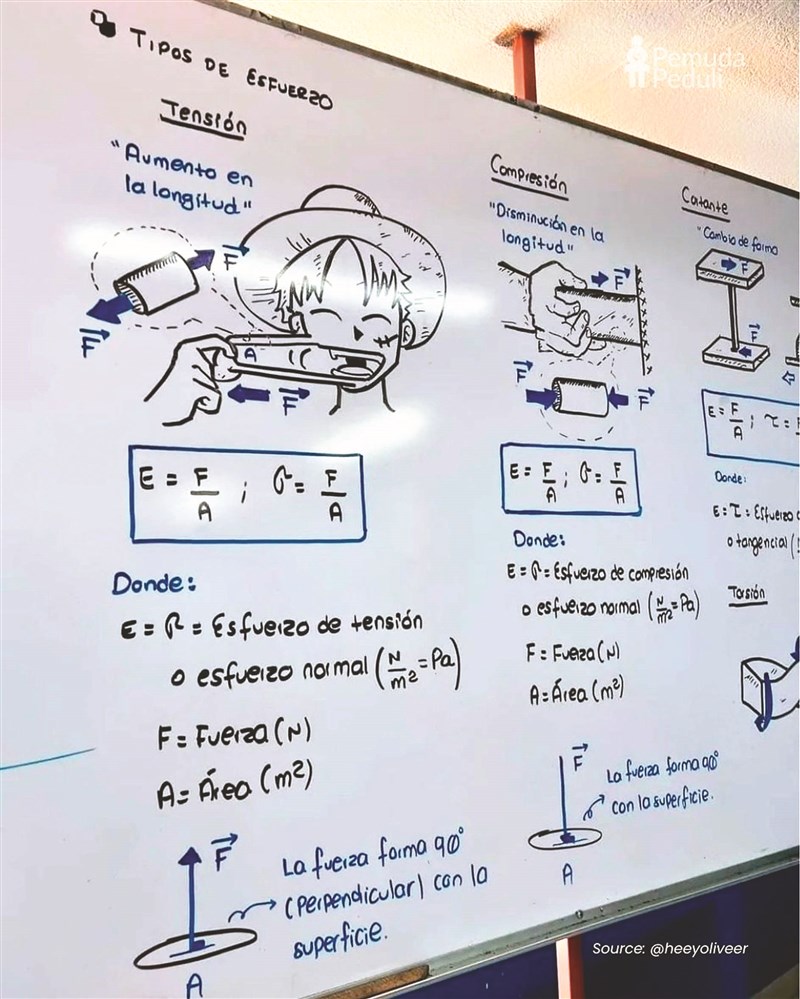 Pemuda
Peduli
TIPOS DE ESFUERZO
Tensión
"Aumento en
la longitud"
F
F
A
F
E = F/A ; σ = F/A
Donde:
E = σ = Esfuerzo de tensión
o esfuerzo normal (N/m² = Pa)
F = Fuerza (N)
A = Área (m²)
F
La fuerza forma 90°
(perpendicular) con la
superficie.
A
Compresión
"Disminución en la
longitud"
F
F
F
E = F/A ; σ = F/A
Donde:
E = σ = Esfuerzo de compresión
o esfuerzo normal (N/m² = Pa)
F = Fuerza (N)
A = Área (m²)
F
La fuerza forma 90°
con la superficie.
A
Cortante
"Cambio de forma
F
F
E = F/A ; τ = F
Donde:
E = τ = Esfuerzo
o tangencial (
Torsión
Source: @heeyoliveer